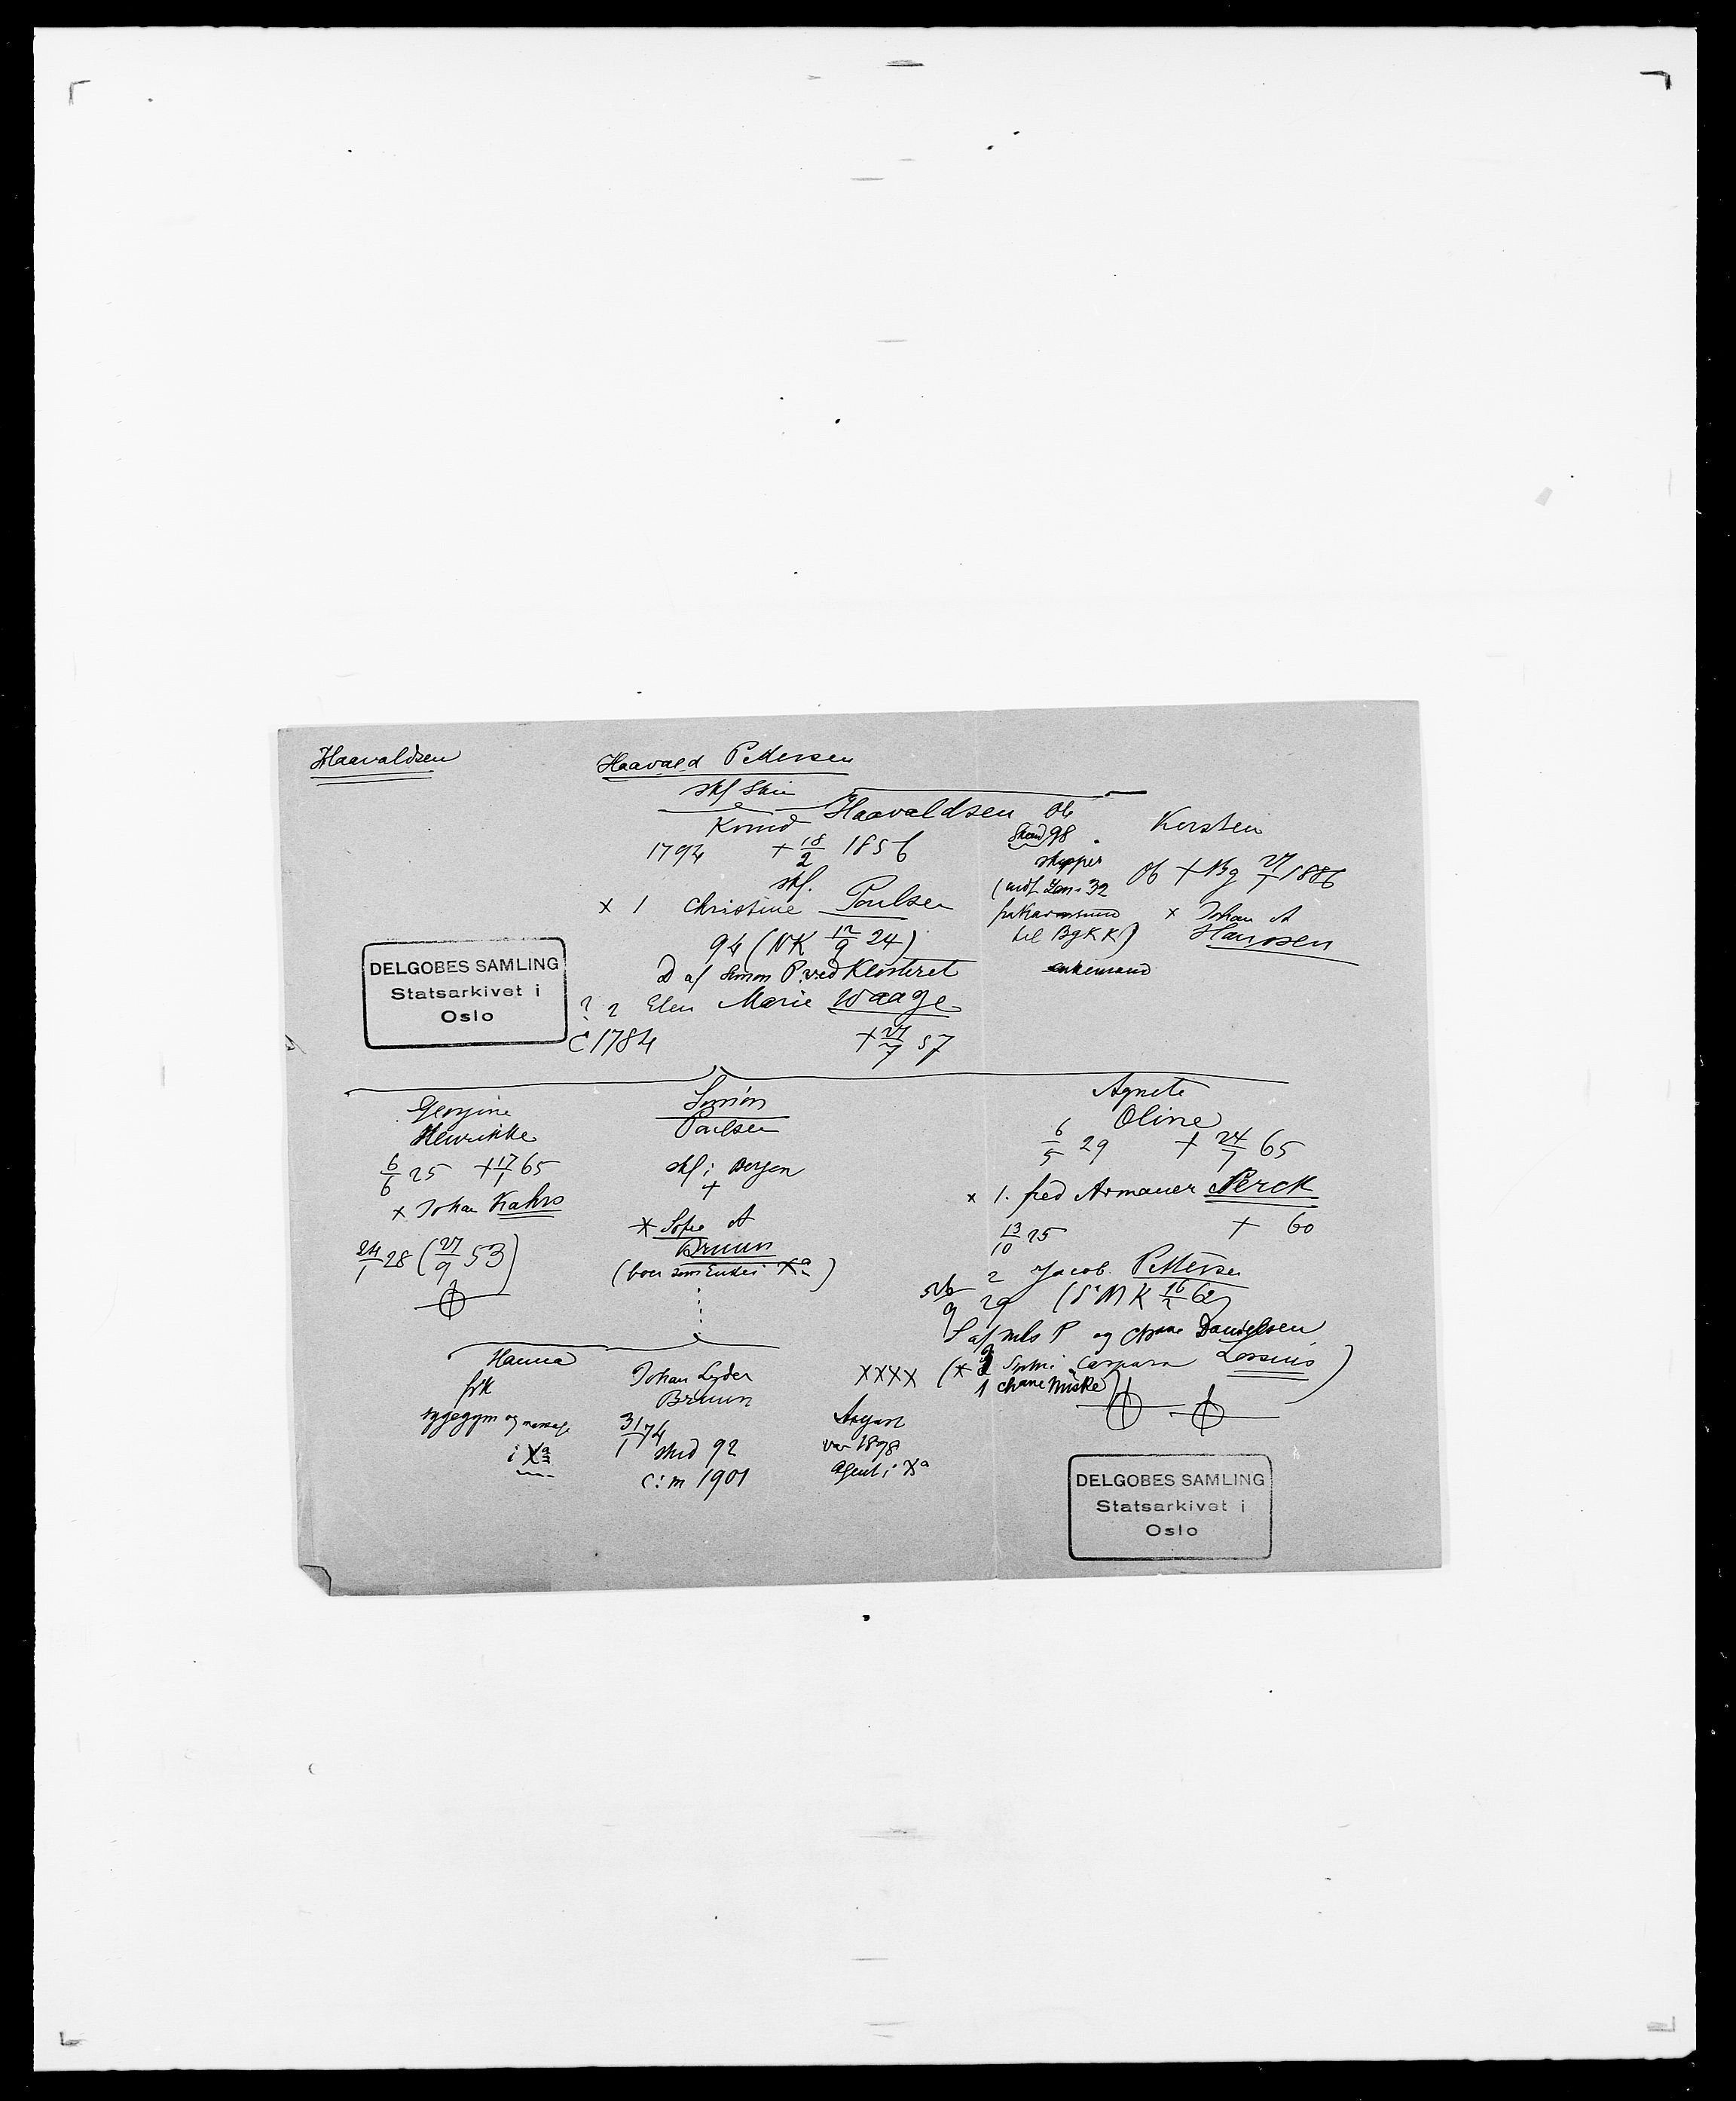 Haavaldsen
Haavald Pettersen
skf Skien
Knud Haavaldsen
1794 + 18/2 1856
skf.
x 1 Christine Poulsen
94 (NK 12/9 24)
D af Simon P. ved Klosteret
? 2 Elen Marie Waage
c 1784 + 27/7 57
Ob
98
skipper
(indf Zoni 32
fra Karmsund
til Bg KK)
enkemand
Kersten
Ob + Bg 27/1 1886
x Johan A
Hanssen
DELGOBES SAMLING
Statsarkivet i
Oslo
Georgine
Henrikke
6/6 25 + 17/1 65
x Johan Kahrs
24/1 28 (27/9 53)
Simon
Poulsen
skf i Bergen
+
x Sofie A
Bruun
(boer som Enke i Xa)
Agnete
Oline
6/5 29 + 24/7 65
x 1. fred Armauer Perck
13/10 25 + 60
2 Jacob Pettersen
9 29 (NK 16/2 62)
S af Nils P og Chane Danielsen
Caspara Lossius)
1 Chane Miske)
Hanna
frk
sygegym og massage
i Xa
Johan Lyder
Bruun
31/1 74
stud 92
c: m 1901
XXXX
August
var 1898
agent i Xa
DELGOBES SAMLING
Statsarkivet i
Oslo